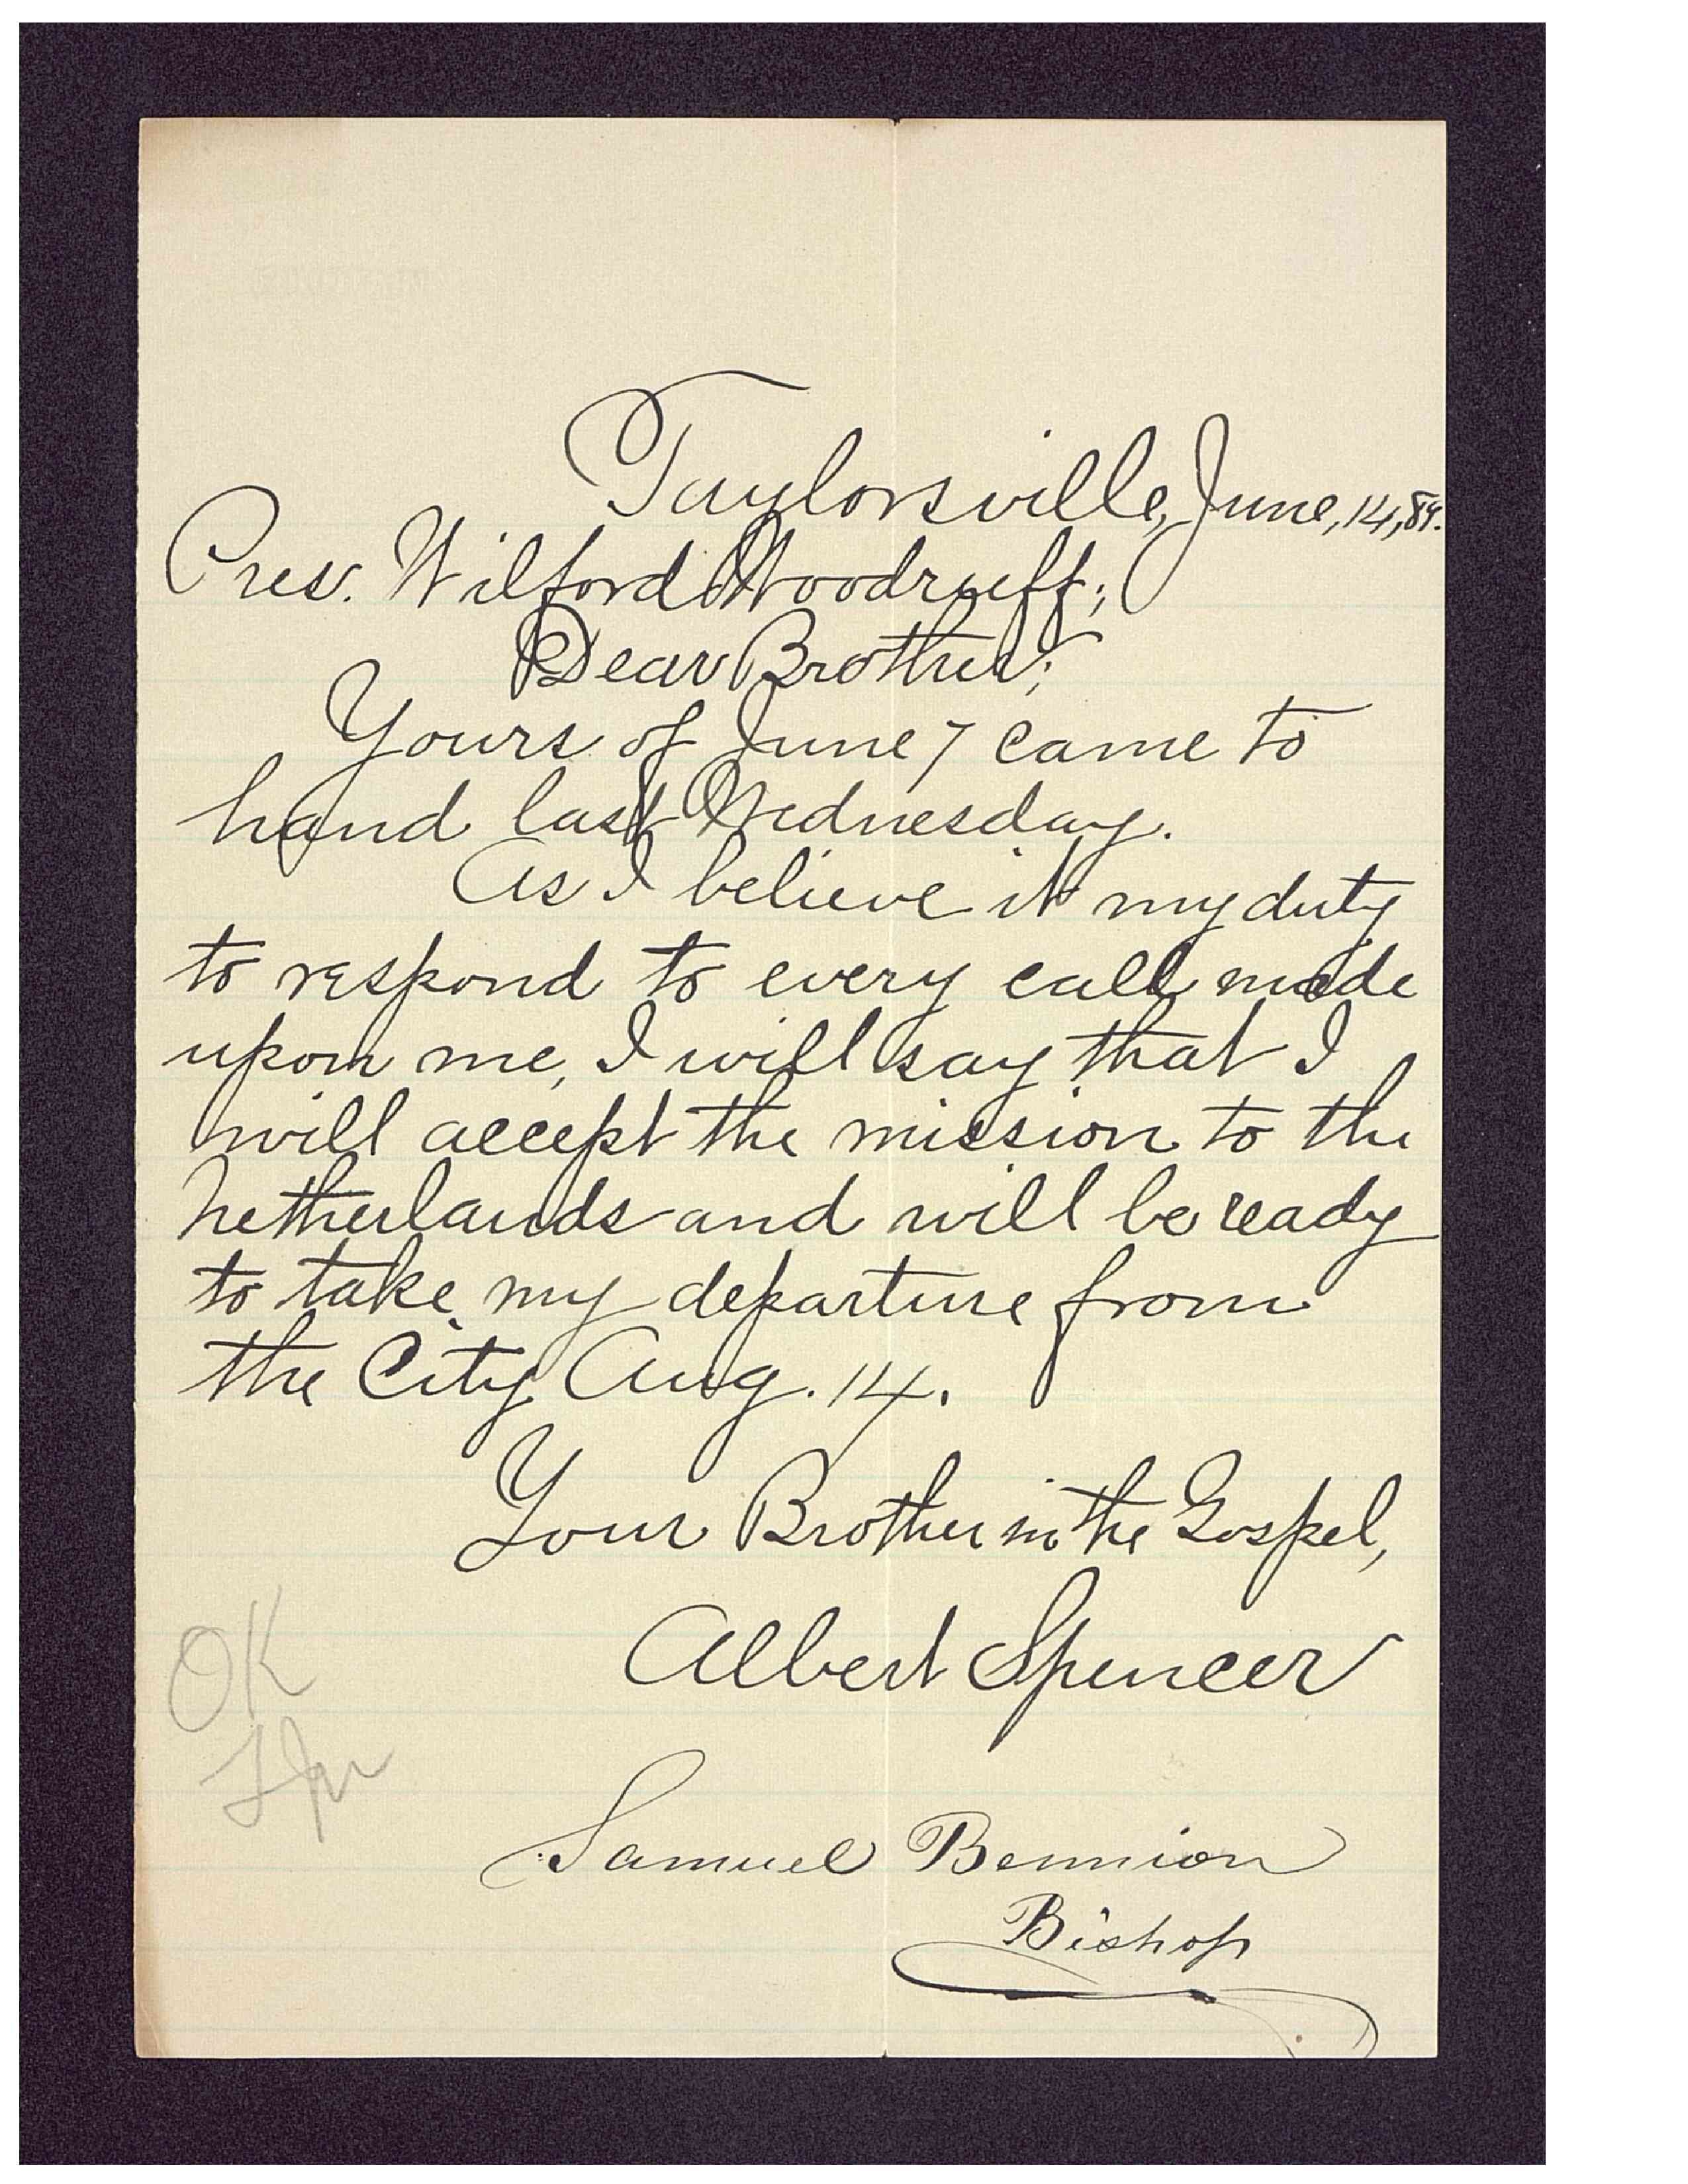 Taylorsville, June, 14, 89.
Pres. Wilford Woodruff;
Dear Brother;
Yours of June 7 came to
hand last Wednesday.
As I believe it my duty
to respond to every call made
upon me, I will say that I
will accept the mission to the
Netherlands and will be ready
to take my departure from
the City Aug. 14.
Your Brother in the Gospel,
Albert Spencer
OK
Samuel Bennion
Bishop